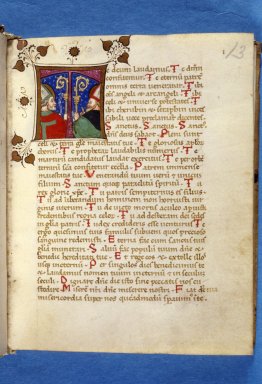 13
e deum laudamus. Te d̄m
confitemur. Te eternū patrē
omnis terra veneratur. Tibi
oēs angeli et archangeli. Tibi
celi et universe potestates. Ti
bi cherubin et seraphin inces
sabili voce proclamāt dicentes.
Sanctus. Sanctus. Sanctus.
dn̄s deus sabaoth. Pleni sunt
celi et terra glē maiestatis tue. Te gloriosus apl̄oꝝ
chorus. Te prophetaꝝ laudabilis numerus. Te
martirū candidatus laudat exercitus. Te per orbē
terraꝝ scā confitetur eccl̄ia. Patrem immense
maiestatis tue. Venerandū tuum verū et unicū
filium. Sanctum quoqꝫ paraclitū spiritū. Tu
rex glorie xp̄e. Tu patris sempiternus es filius.
Tu ad liberandū suscepturus hominem non horruisti
virginis uterum. Tu devicto mortis aculeo aperuisti
credentibus regna celoꝝ. Tu ad dexteram dei sedes
in gloria patris. Iudex crederis esse venturus. Te
ergo quesumus tuis famulis subveni quos precioso
sanguine redemisti. Eterna fac cum sanctis tuis
gloria munerari. Salvū fac populū tuum dn̄e et
benedic hereditati tue. Et rege eos et extolle illos
usqꝫ in eternū. Per singulos dies benedicimus te
et laudamus nomen tuum in eternū et in seculū
seculi. Dignare dn̄e die isto sine peccato nos cu
stodire. Miserē nr̄i dn̄e miserere nostri. Fiat dn̄e
misericordia tua super nos quēadmodū speravimꝰ in te.